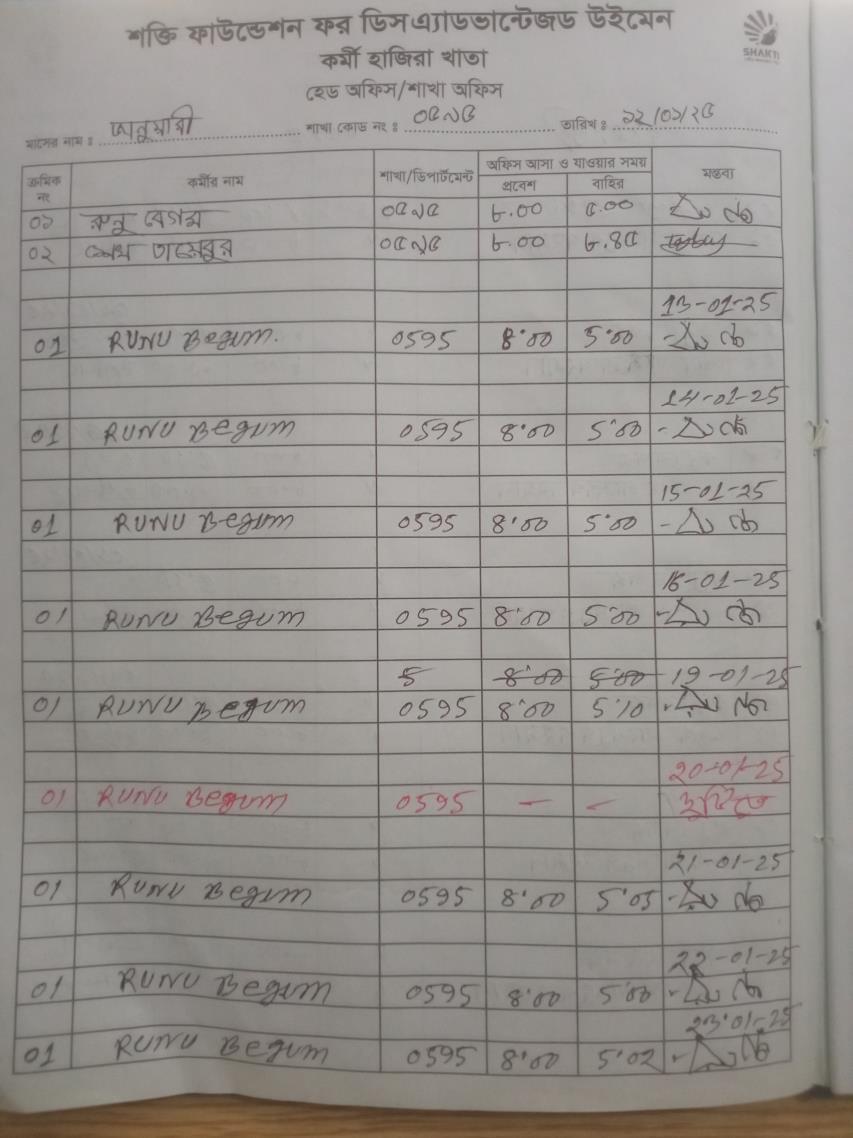 শক্তি ফাউন্ডেশন ফর ডিসএ্যাডভান্টেজড উইমেন
কর্মী হাজিরা খাতা
SHAKTI
হেড অফিস/শাখা অফিস
মাসের নাম : জানুয়ারী শাখা কোড নং : ০৫৯৫ তারিখ : ১২/০১/২৫
ক্রমিক নং কর্মীর নাম শাখা/ডিপার্টমেন্ট অফিস আসা ও যাওয়ার সময় মন্তব্য
প্রবেশ বাহির
০১ রুনু বেগম ০৫৯৫ ৮.০০ ৫.০০
০২ ০৫৯৫ ৮.০০ ৮.৪৫
13-01-25
01 RUNU Begum. 0595 8'00 5'00
14-01-25
01 RUNU Begum 0595 8'00 5'00
15-01-25
01 RUNU Begum 0595 8'00 5'00
16-01-25
01 RUNU Begum 0595 8'00 5'00
5 8'00 5'00 19-01-25
01 RUNU Begum 0595 8'00 5'10
20-01-25
01 RUNU Begum 0595 – – ছুটিতে
21-01-25
01 RUNU Begum 0595 8'00 5'05
22-01-25
01 RUNU Begum 0595 8'00 5'00
23'01-25
01 RUNU Begum 0595 8'00 5'02